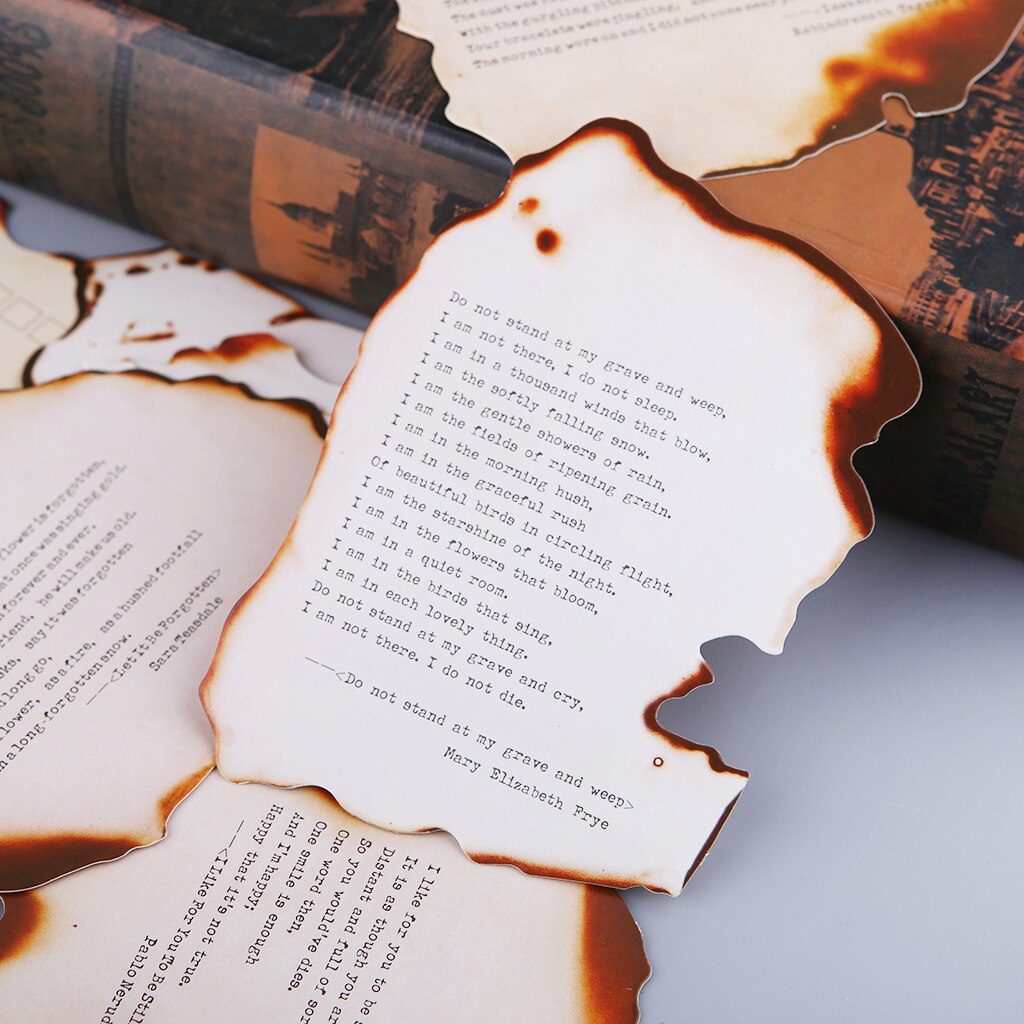 The dust was
with the gurgling pitcher
Your bracelets were jingling,
The morning wore on and I did not come near you
Rabindranath Tagore
Do not stand at my grave and weep,
I am not there, I do not sleep.
I am in a thousand winds that blow,
I am the softly falling snow.
I am the gentle showers of rain,
I am the fields of ripening grain.
I am in the morning hush,
I am in the graceful rush
Of beautiful birds in circling flight,
I am the starshine of the night.
I am in the flowers that bloom,
I am in a quiet room.
I am in the birds that sing,
I am in each lovely thing.
Do not stand at my grave and cry,
I am not there. I do not die.
---<Do not stand at my grave and weep>
Mary Elizabeth Frye
flower is forgotten,
at one was singing gold.
forever and ever,
friend, he will make us old.
say it was forgotten
long ago,
flower, as a fire, as a hushed footfall
a long-forgotten snow.
---<Let It Be Forgotten>
Sara Teasdale
I like for you to be s
It is as though you ar
Distant and full of sor
So you would've dies.
One word then,
One smile is enough
And I'm happy;
Happy that it's not true.
---<I Like For You To Be Still
Pablo Nerud